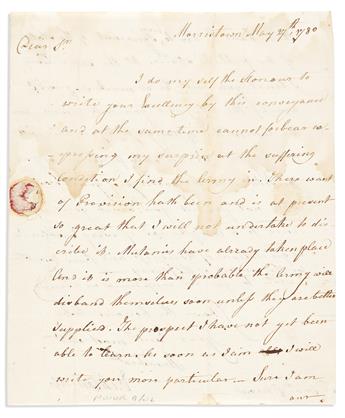 Morristown May 27th 1780
Dear Sr.
I do my self the Honour to
write your Excellency by this conveyance
and at the same time cannot forbear ex-
pressing my surprise at the suffering
condition I find the Army in. There want
of Provision hath been and is at present
so great that I will not undertake to dis-
cribe it. Mutanies have already taken place
And it is more than probable the Army will
disband themselves soon unless they are better
supplied. The prospect I have not yet been
able to learn. As soon as I am I will
write you more particular — Sure I am
our